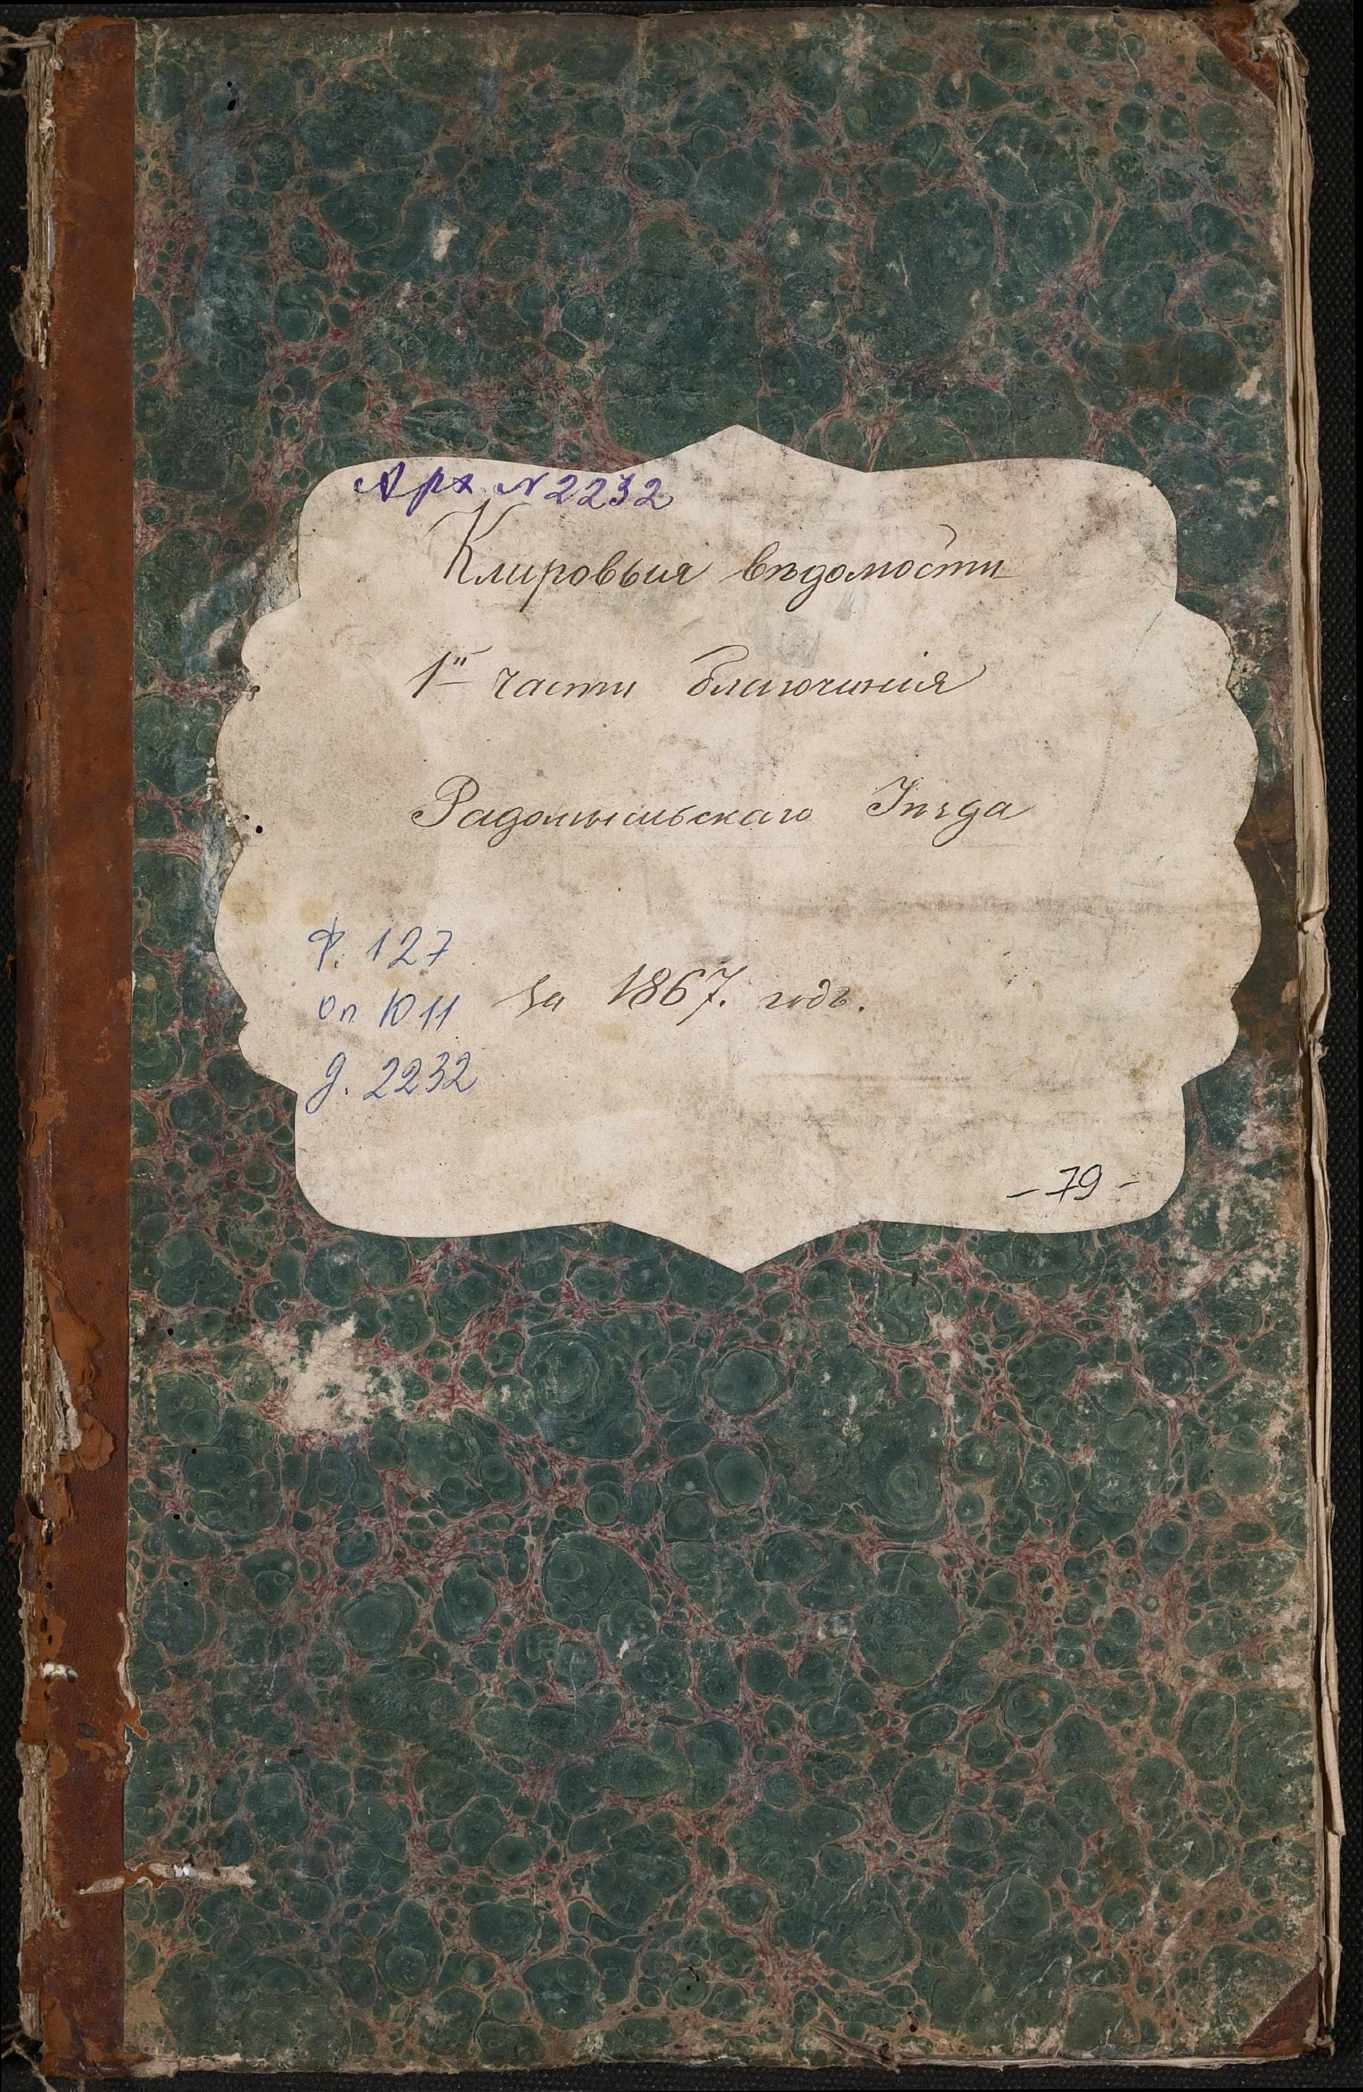 Арх. №2232
Клировыя вѣдомости
1й части благочинія
Радомысльскаго Уѣзда
Ф. 127
оп 1011
за 1867. годъ.
д. 2232
- 79 -